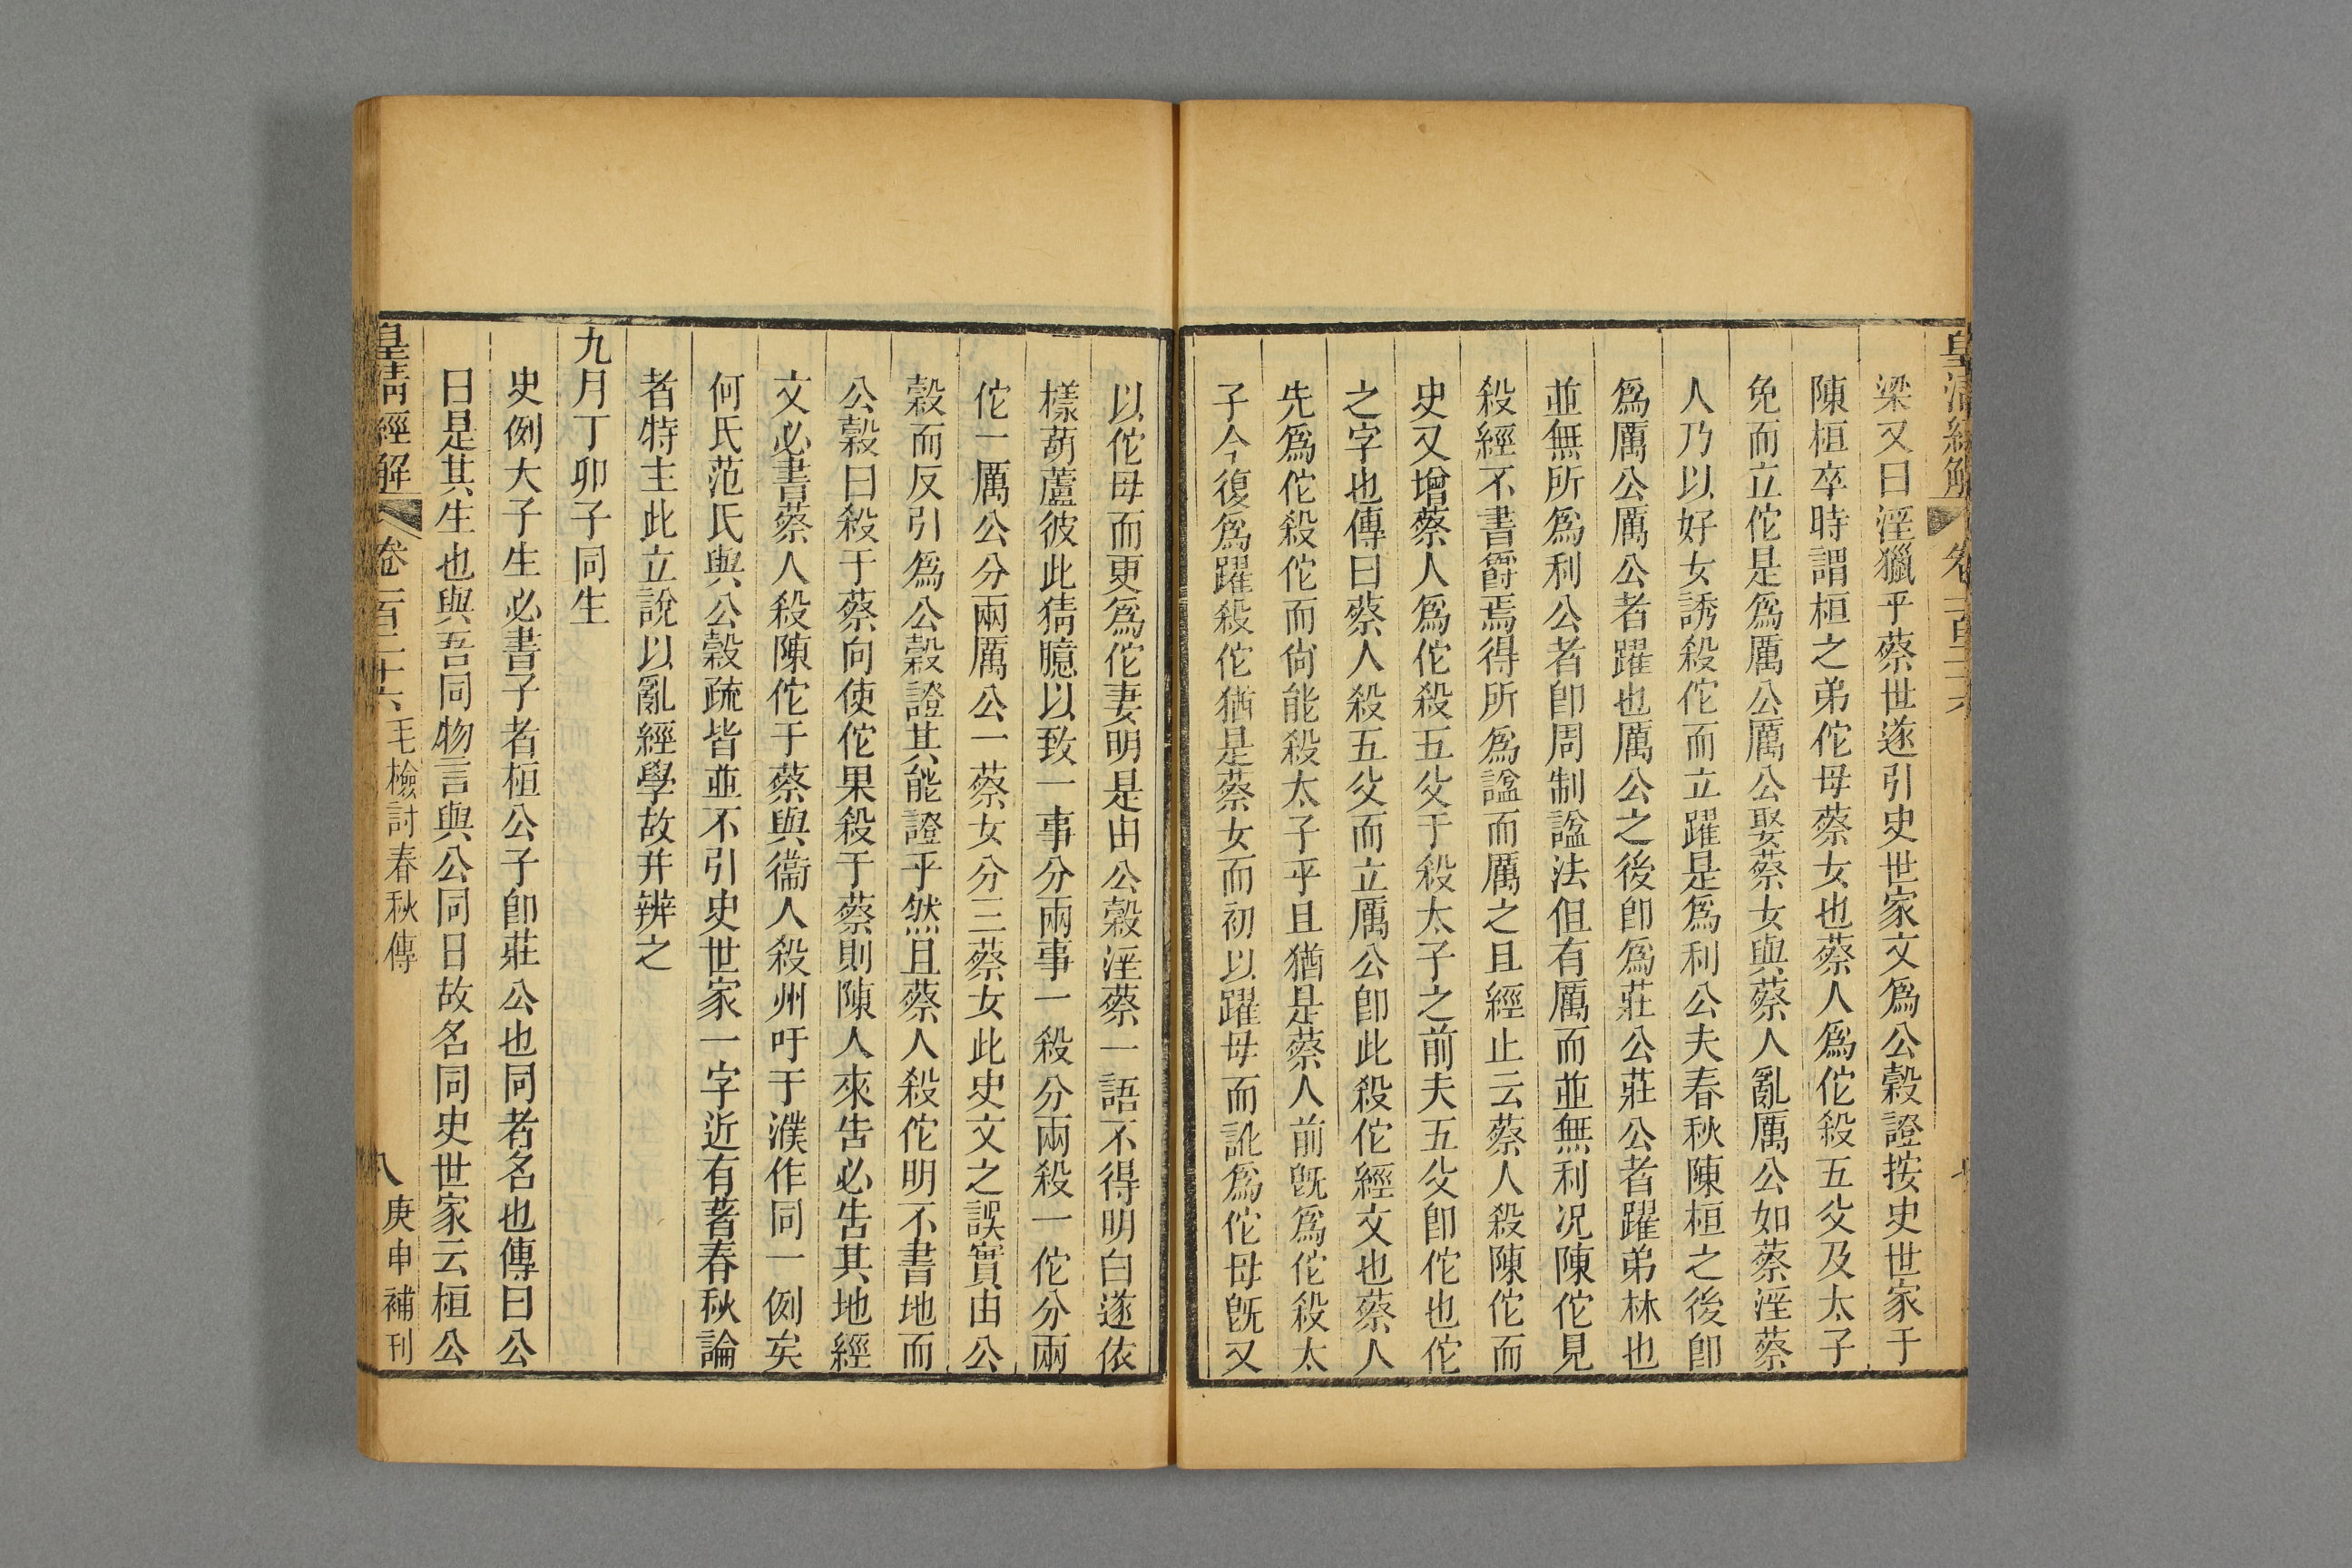 皇清經解
卷一百二十六
梁又曰淫獵乎蔡世遂引史世家文爲公穀證按史世家于
陳桓卒時謂桓之弟佗母蔡女也蔡人爲佗殺五父及太子
免而立佗是爲厲公厲公娶蔡女與蔡人亂厲公如蔡淫蔡
人乃以好女誘殺佗而立躍是爲利公夫春秋陳桓之後卽
爲厲公厲公者躍也厲公之後卽爲莊公莊公者躍弟林也
並無所爲利公者卽周制諡法但有厲而並無利况陳佗見
殺經不書爵焉得所爲諡而厲之且經止云蔡人殺陳佗而
史又增蔡人爲佗殺五父于殺太子之前夫五父卽佗也佗
之字也傳曰蔡人殺五父而立厲公卽此殺佗經文也蔡人
先爲佗殺佗而尙能殺太子乎且猶是蔡人前旣爲佗殺太
子今復爲躍殺佗猶是蔡女而初以躍母而訛爲佗母旣又
以佗母而更爲佗妻明是由公穀淫蔡一語不得明白遂依
樣葫蘆彼此猜臆以致一事分兩事一殺分兩殺一佗分兩
佗一厲公分兩厲公一蔡女分三蔡女此史文之誤實由公
穀而反引爲公穀證其能證乎然且蔡人殺佗明不書地而
公穀曰殺于蔡向使佗果殺于蔡則陳人來告必告其地經
文必書蔡人殺陳佗于蔡與衞人殺州吁于濮作同一例矣
何氏范氏與公穀疏皆並不引史世家一字近有著春秋論
者特主此立說以亂經學故并辨之
九月丁卯子同生
史例大子生必書子者桓公子卽莊公也同者名也傳曰公
曰是其生也與吾同物言與公同日故名同史世家云桓公
皇清經解
卷一百二十六
毛檢討春秋傳
八
庚申補刊